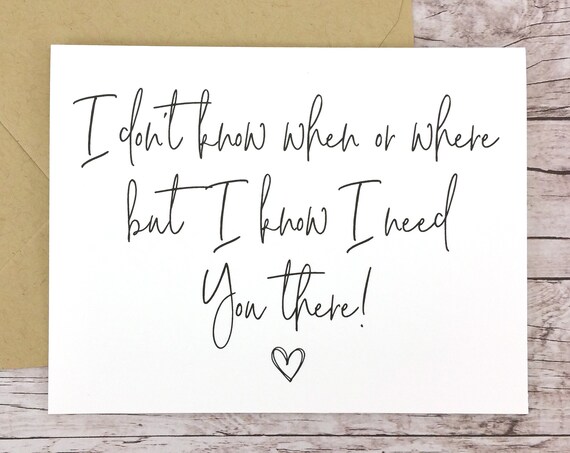 I don't know when or where
but I know I need
You there!